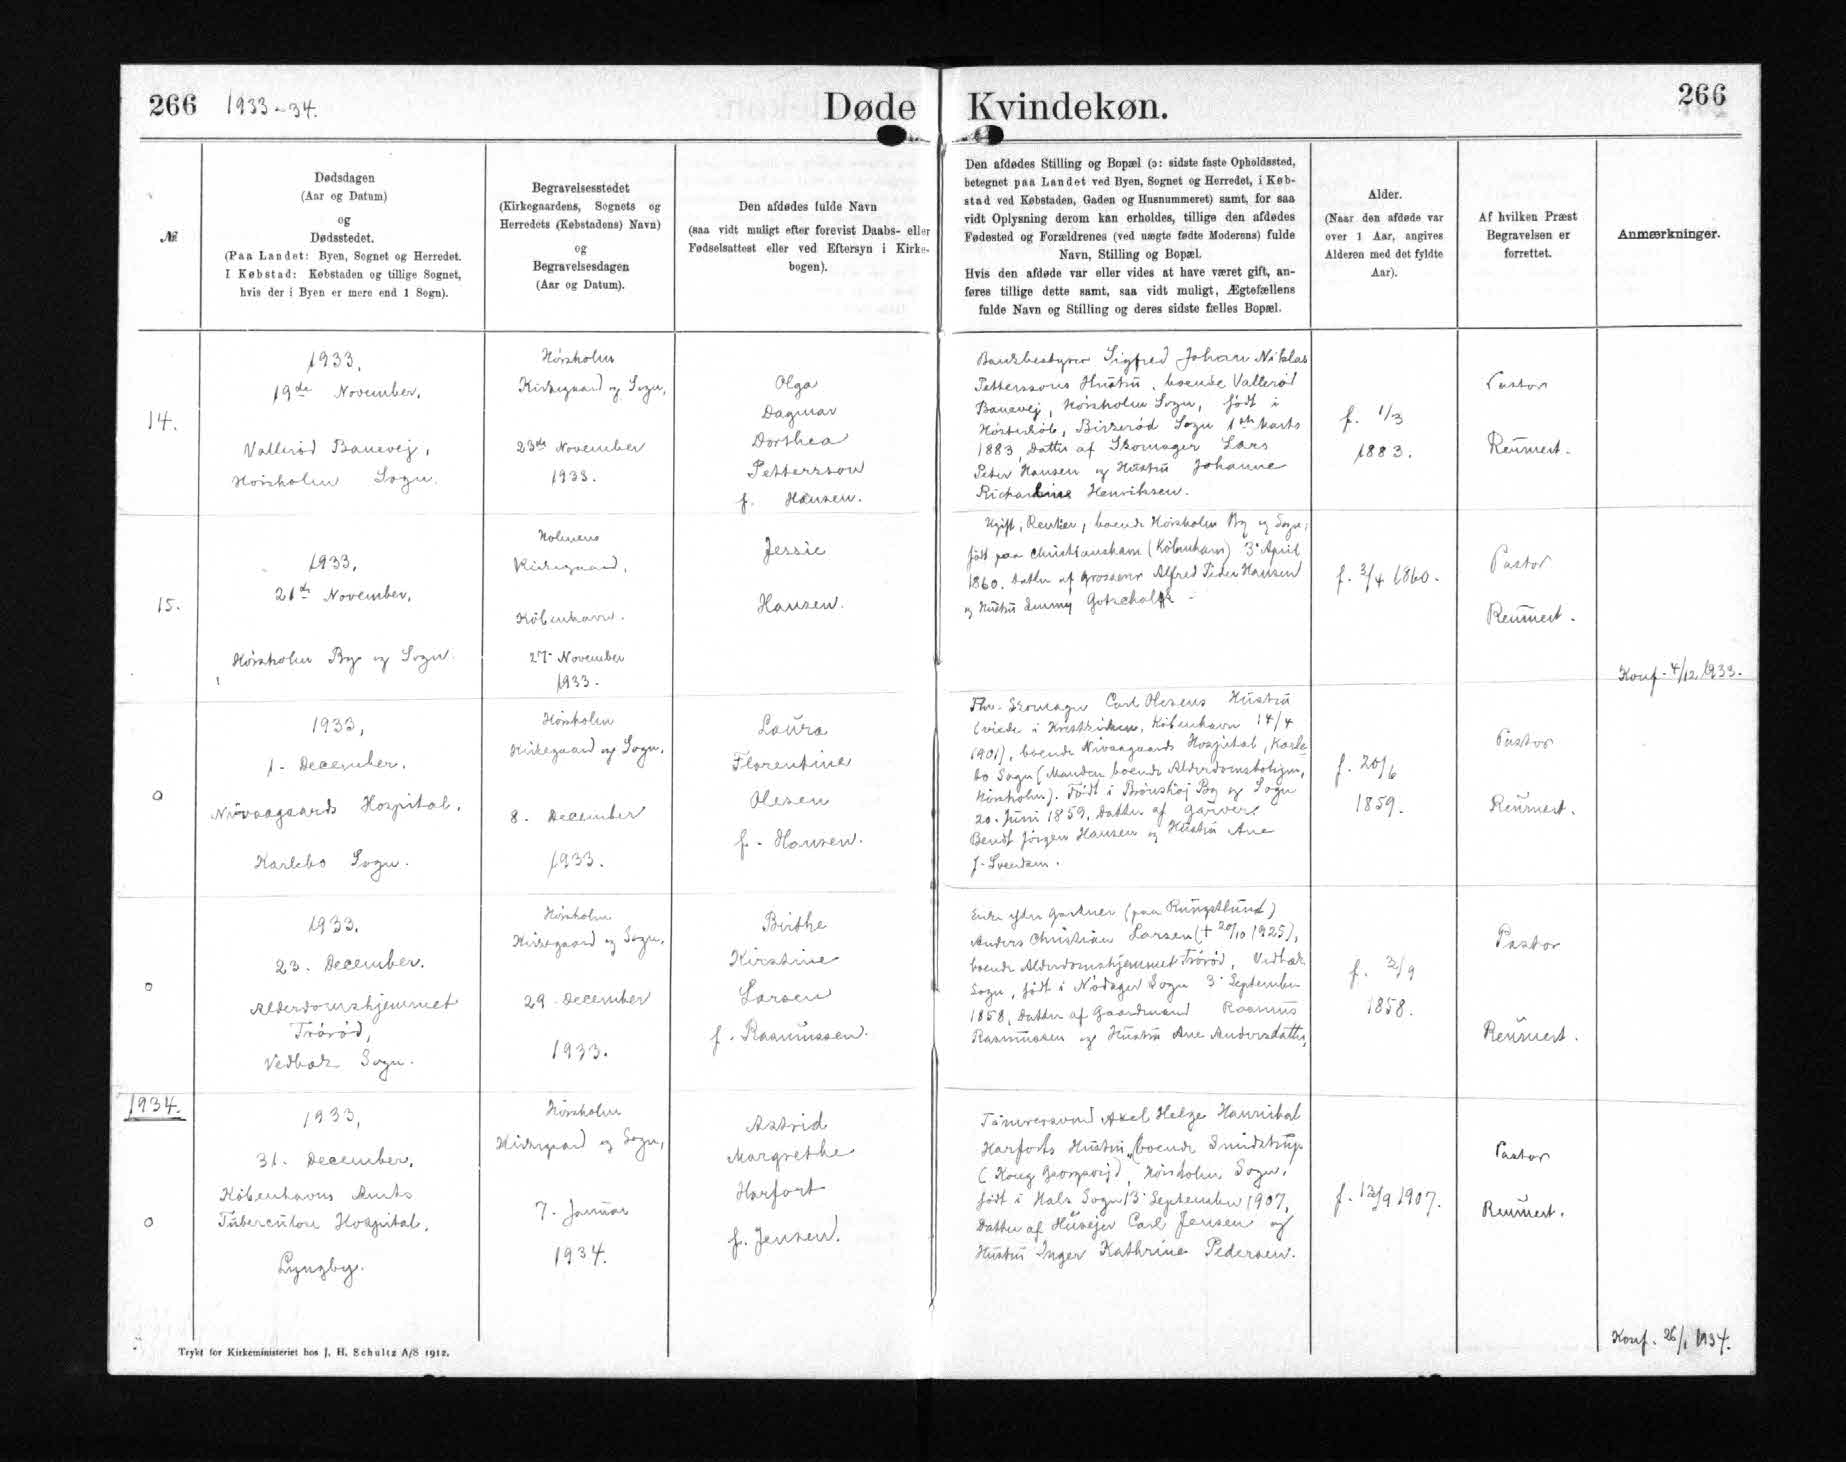 266 1933-34.
Døde Kvindekøn.
266
№
Dødsdagen
(Aar og Datum)
og
Dødsstedet.
(Paa Landet: Byen, Sognet og Herredet.
I Købstad: Købstaden og tillige Sognet,
hvis der i Byen er mere end 1 Sogn).
Begravelsesstedet
(Kirkegaardens, Sognets og
Herredets (Købstadens) Navn)
og
Begravelsesdagen
(Aar og Datum).
Den afdødes fulde Navn
(saa vidt muligt efter forevist Daabs- eller
Fødselsattest eller ved Eftersyn i Kirke-
bogen).
Den afdødes Stilling og Bopæl (ɔ: sidste faste Opholdssted,
betegnet paa Landet ved Byen, Sognet og Herredet, i Køb-
stad ved Købstaden, Gaden og Husnummeret) samt, for saa
vidt Oplysning derom kan erholdes, tillige den afdødes
Fødested og Forældrenes (ved uægte fødte Moderens) fulde
Navn, Stilling og Bopæl.
Hvis den afdøde var eller vides at have været gift, an-
føres tillige dette samt, saa vidt muligt, Ægtefællens
fulde Navn og Stilling og deres sidste fælles Bopæl.
Alder.
(Naar den afdøde var
over 1 Aar, angives
Alderen med det fyldte
Aar).
Af hvilken Præst
Begravelsen er
forrettet.
Anmærkninger.
14.
1933,
19de November,
Vallerød Banevej,
Hørsholm Sogn.
Hørsholm
Kirkegaard og Sogn,
23de November
1933.
Olga
Dagmar
Dorthea
Pettersson
f. Hansen.
Bankbestyrer Sigfred Johan Niklas
Petterssons Hustru, boende Vallerød
Banevej, Hørsholm Sogn, født i
Høsterkøb, Birkerød Sogn 1ste Marts
1883, Datter af Skomager Lars
Peter Hansen og Hustru Johanne
Richardine Henriksen.
f. 1/3
1883.
Pastor
Reumert.
15.
1933,
21de November,
Hørsholm By og Sogn.
Holmens
Kirkegaard,
København.
27- November
1933.
Jessie
Hansen.
Ugift, Rentier, boende Hørsholm By og Sogn,
født paa Christianshavn (København) 3' April
1860. Datter af Grosserer Alfred Peder Hansen
og Hustru Emmy Gotschalk -
f. 3/4 1860.
Pastor
Reumert.
Konf. 4/12 1933.
o
1933,
1- December.
Nivaagaards Hospital,
Karlebo Sogn.
Hørsholm
Kirkegaard og Sogn,
8. December
1933.
Laura
Florentine
Olesen
f. Hansen.
Fhv. Skomager Carl Olesens Hustru
(viede i Kristkirken, København 14/4
1901), boende Nivaagaards Hospital, Karle-
bo Sogn (Manden boende Alderdomsboligen,
Hørsholm). Født i Brønshøj By og Sogn
20. Juni 1859, Datter af Garver
Bendt Jørgen Hansen og Hustru Ane
f. Svendsen.
f. 20/6
1859.
Pastor
Reumert.
o
1933.
23. December.
Alderdomshjemmet
Trørød,
Vedbæk Sogn.
Hørsholm
Kirkegaard og Sogn,
29- December
1933.
Birthe
Kirstine
Larsen
f. Rasmussen.
Enke efter Gartner (paa Rungstlund)
Anders Christian Larsen († 20/10 1925),
boende Alderdomshjemmet Trørød, Vedbæk
Sogn, født i Nødager Sogn 3' September
1858, Datter af Gaardmand Rasmus
Rasmussen og Hustru Ane Andersdatter,
f. 3/9
1858.
Pastor
Reumert.
1934.
o
1933,
31. December,
Københavns Amts
Tuberculose Hospital,
Lyngby.
Hørsholm
Kirkegaard og Sogn,
7. Januar
1934.
Astrid
Margrethe
Harfort
f. Jensen.
Tømrersvend Axel Helge Hannibal
Harforts Hustru, boende Smidstrup
(Kong Georgsvej), Hørsholm Sogn,
født i Hals Sogn 13' September 1907,
Datter af Husejer Carl Jensen og
Hustru Inger Kathrine Pedersen.
f. 13/9 1907.
Pastor
Reumert.
Konf. 26/1 1934.
Trykt for Kirkeministeriet hos J. H. Schultz A/S 1912.